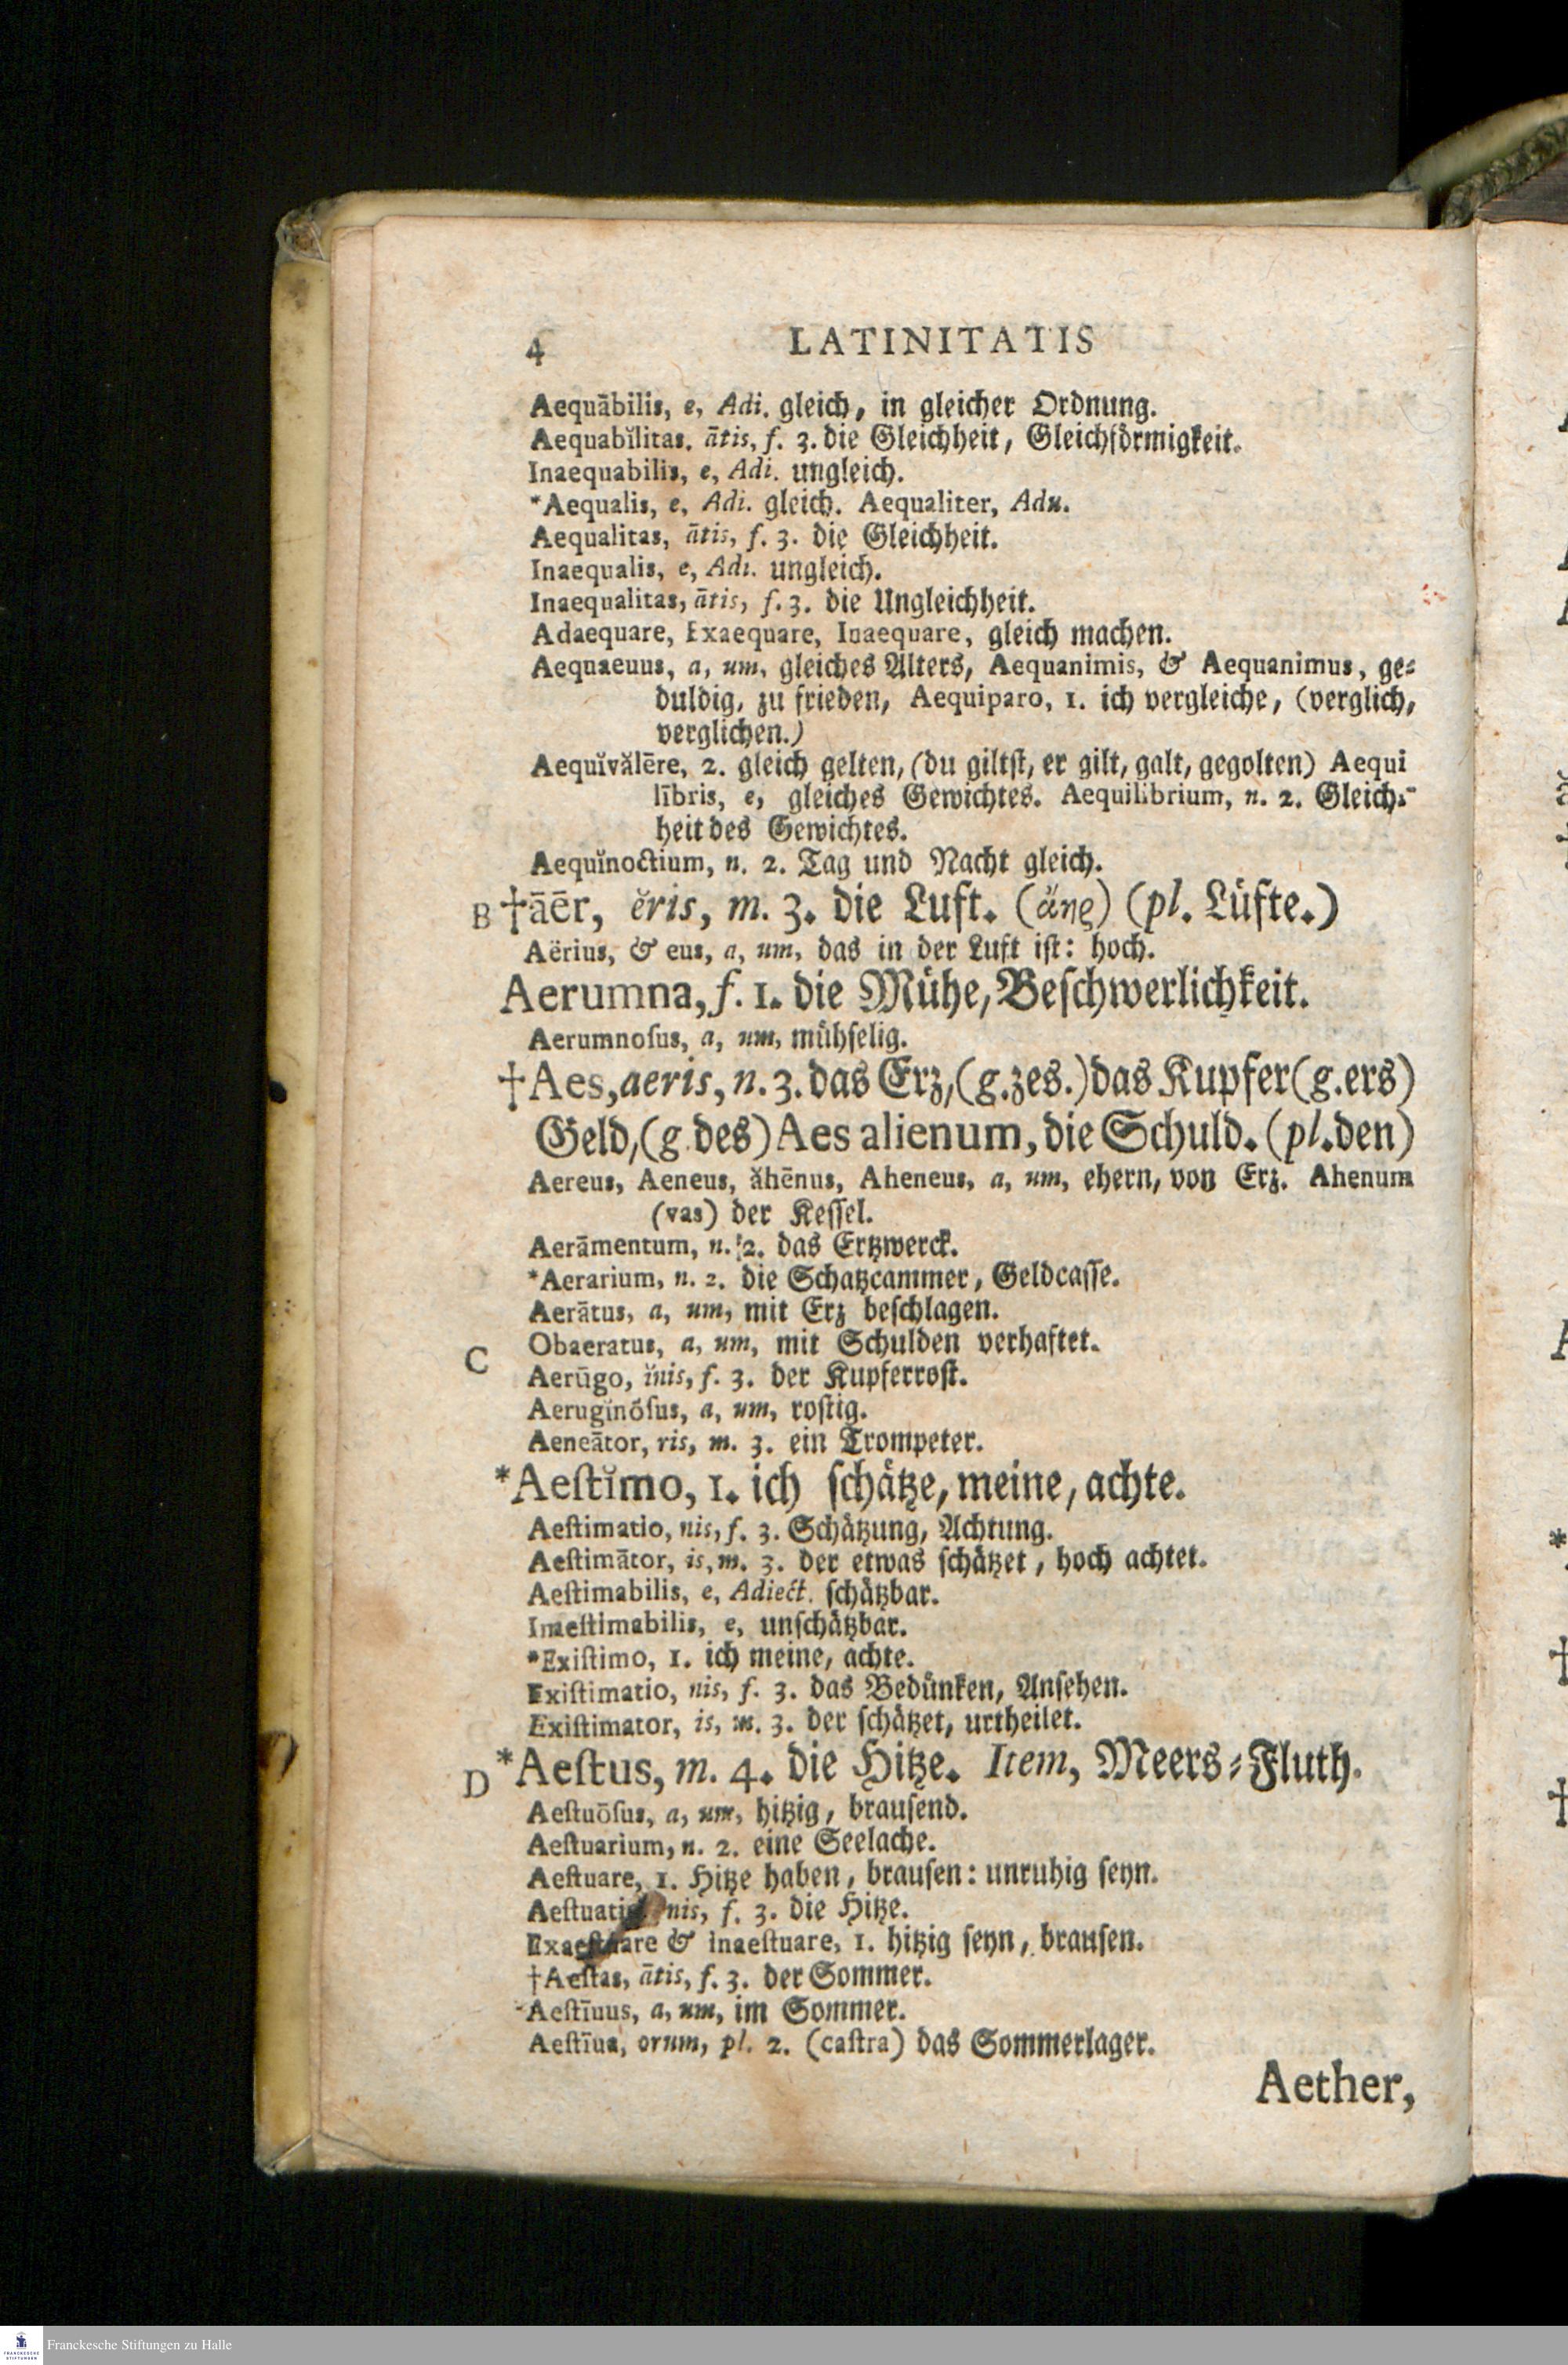 4 LATINITATIS
Aequābilis, e, Adi. gleich, in gleicher Ordnung.
Aequabĭlitas, ātis, f. 3. die Gleichheit, Gleichförmigkeit.
Inaequabilis, e, Adi. ungleich.
*Aequalis, e, Adi. gleich. Aequaliter, Adu.
Aequalitas, ātis, f. 3. die Gleichheit.
Inaequalis, e, Adi. ungleich.
Inaequalitas, ātis, f. 3. die Ungleichheit.
Adaequare, Exaequare, Inaequare, gleich machen.
Aequaeuus, a, um, gleiches Alters, Aequanimis, & Aequanimus, ge⸗
duldig, zu frieden, Aequiparo, 1. ich vergleiche, (verglich,
verglichen.)
Aequĭvălēre, 2. gleich gelten, (du giltſt, er gilt, galt, gegolten) Aequi
lībris, e, gleiches Gewichtes. Aequilibrium, n. 2. Gleich⸗
heit des Gewichtes.
Aequĭnoctium, n. 2. Tag und Nacht gleich.
B †āēr, ĕris, m. 3. die Luft. (ἀης) (pl. Lüfte.)
Aërius, & eus, a, um, das in der Luft iſt: hoch.
Aerumna, f. 1. die Mühe, Beſchwerlichkeit.
Aerumnoſus, a, um, mühſelig.
†Aes, aeris, n. 3. das Erz, (g. zes.) das Kupfer (g. ers)
Geld, (g. des) Aes alienum, die Schuld. (pl. den)
Aereus, Aeneus, ăhēnus, Aheneus, a, um, ehern, von Erz. Ahenum
(vas) der Keſſel.
Aerāmentum, n. 2. das Ertzwerck.
*Aerarium, n. 2. die Schatzcammer, Geldcaſſe.
Aerātus, a, um, mit Erz beſchlagen.
C Obaeratus, a, um, mit Schulden verhaftet.
Aerūgo, ĭnis, f. 3. der Kupferroſt.
Aerugĭnōſus, a, um, roſtig.
Aeneātor, ris, m. 3. ein Trompeter.
*Aeſtĭmo, 1. ich ſchätze, meine, achte.
Aeſtimatio, nis, f. 3. Schätzung, Achtung.
Aeſtimātor, is, m. 3. der etwas ſchätzet, hoch achtet.
Aeſtimabilis, e, Adiect. ſchätzbar.
Inaeſtimabilis, e, unſchätzbar.
*Exiſtimo, 1. ich meine, achte.
Exiſtimatio, nis, f. 3. das Bedünken, Anſehen.
Exiſtimator, is, m. 3. der ſchätzet, urtheilet.
D *Aeſtus, m. 4. die Hitze. Item, Meers⸗Fluth.
Aeſtuōſus, a, um, hitzig, brauſend.
Aeſtuarium, n. 2. eine Seelache.
Aeſtuare, 1. Hitze haben, brauſen: unruhig ſeyn.
nis, f. 3. die Hitze.
& inaeſtuare, 1. hitzig ſeyn, brauſen.
†Aeſtas, ātis, f. 3. der Sommer.
Aeſtīuus, a, um, im Sommer.
Aeſtīua, orum, pl. 2. (caſtra) das Sommerlager.
Aether,
Franckesche Stiftungen zu Halle